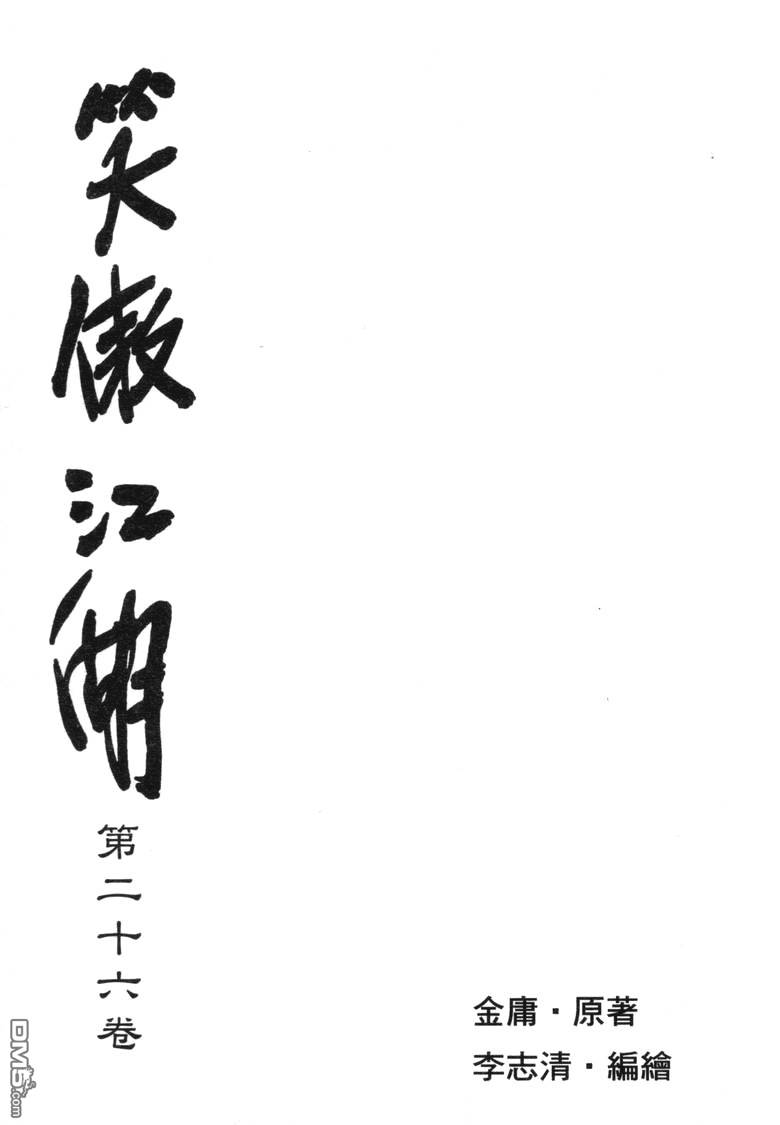 笑傲江湖
第二十六卷
金庸·原著
李志清·編繪
DM5.com